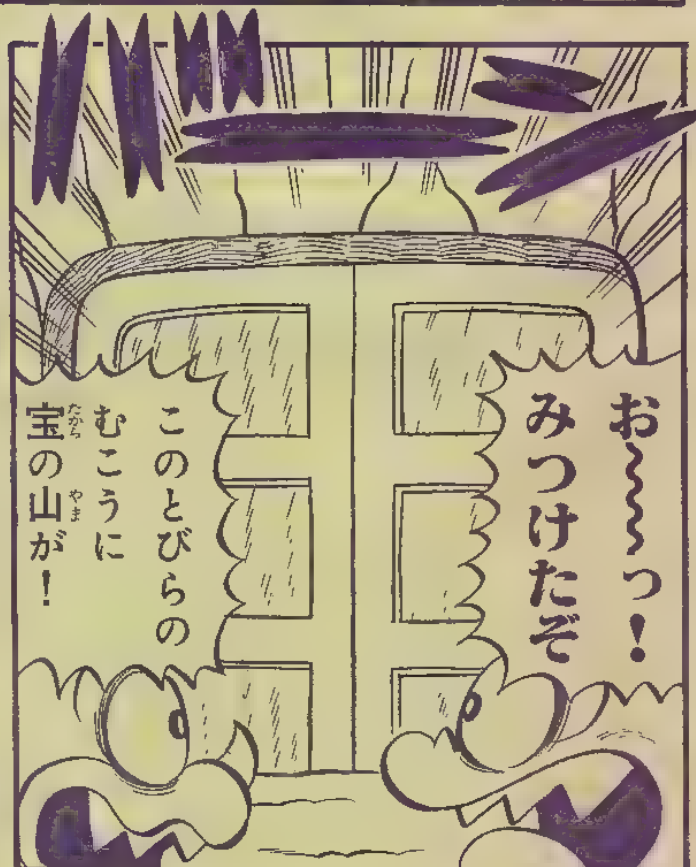 お〜〜〜っ！
みつけたぞ
このとびらの
むこうに
宝の山が！